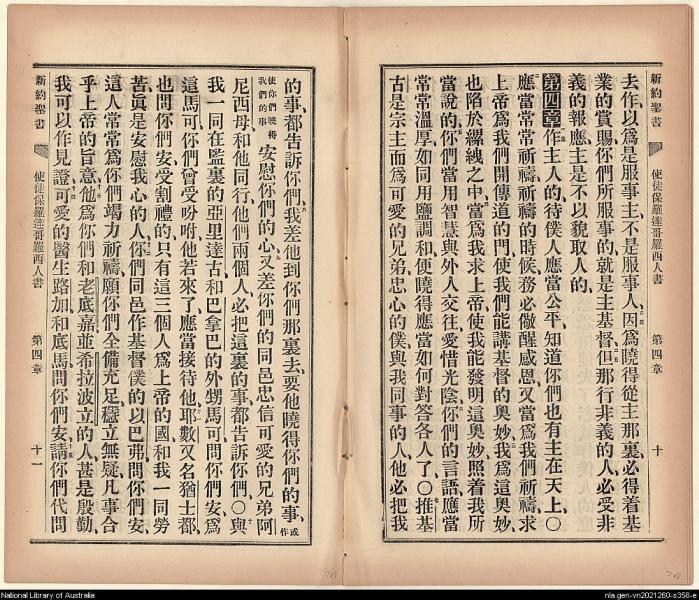 新約聖書 使徒保羅達哥羅西人書 第四章 十
去作以爲是服事主不是服事人因爲曉得從主那裏必得着基
業的賞賜你們所服事的就是主基督但那行非義的人必受非
義的報應主是不以貌取人的
第四章 作主人的待僕人應當公平知道你們也有主在天上〇
應當常常祈禱祈禱的時候務必儆醒感恩又當爲我們祈禱求
上帝爲我們開傳道的門使我們能講基督的奧妙我爲這奧妙
也陷於縲絏之中當爲我求上帝使我能發明這奧妙照着我所
當說的你們當用智慧與外人交往愛惜光陰你們的言語應當
常常溫厚如同用鹽調和便曉得應當如何對答各人了〇推基
古是宗主而爲可愛的兄弟忠心的僕與我同事的人他必把我
的事都告訴你們我差他到你們那裏去要他曉得你們的事或作
使你們曉得我們的事安慰你們的心又差你們的同邑忠信可愛的兄弟阿
尼西母和他同行他們兩個人必把這裏的事都告訴你們〇與
我一同在監裏的亞里達古和巴拿巴的外甥馬可問你們安爲
這馬可你們曾受吩咐他若來了應當接待他耶數又名猶士都
也問你們安受割禮的只有這三個人爲上帝的國和我一同勞
苦眞是安慰我心的人你們同邑作基督僕的以巴弗問你們安
這人常常爲你們竭力祈禱願你們全備充足穩立無疑凡事合
乎上帝的旨意他爲你們和老底嘉並希拉波立的人甚是殷勤
我可以作見證可愛的醫生路加和底馬問你們安請你們代問
新約聖書 使徒保羅達哥羅西人書 第四章 十一
National Library of Australia
nla.gen-vn2021260-s358-e